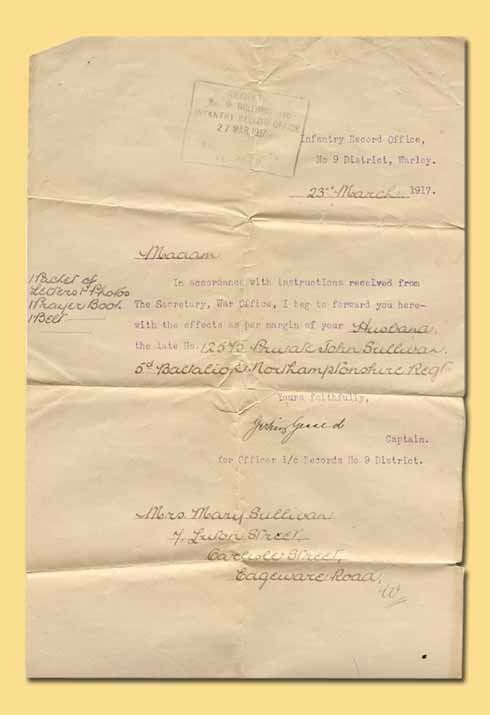 No. 9
INFANTRY RECORD OFFICE
27 MAR 1917
Infantry Record Office,
No 9 District, Warley.
23rd March 1917.
Madam
1 Packet of
Letters & Photos
1 Prayer Book
1 Belt
In accordance with instructions received from
The Secretary, War Office, I beg to forward you here-
with the effects as per margin of your Husband.
the late No. 12575 Private John Sullivan.
5th Battalion, Northamptonshire Regt
Yours faithfully,
Captain.
for Officer i/c Records No 9 District.
Mrs Mary Sullivan.
7, Luton Street,
Carlisle Street,
Edgeware Road,
W.